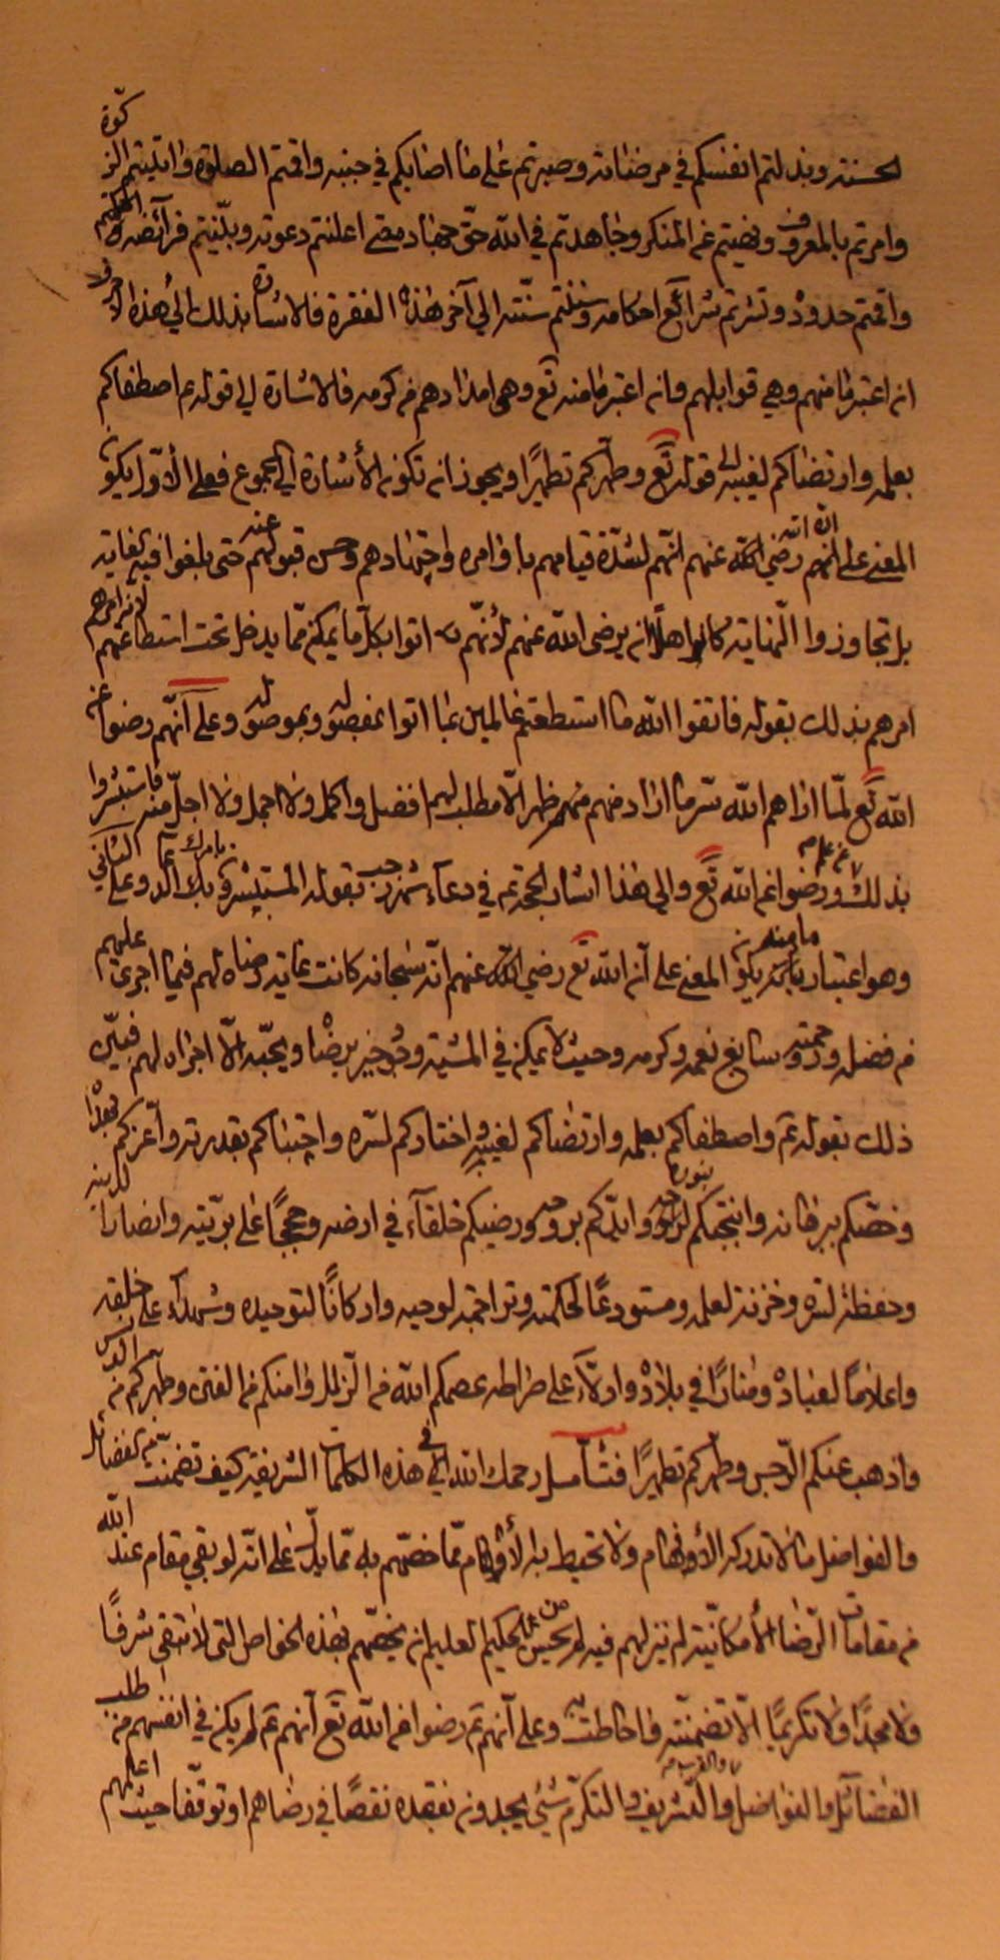 الحسنة وبذلتم انفسكم في مرضاته وصبرتم على ما اصابكم في جنبه واقمتم الصلوة واتيتم الزكوة
وامرتم بالمعروف ونهيتم عن المنكر وجاهدتم في الله حق جهاده حتى اعلنتم دعوته وبيّنتم فرائضه
واقمتم حدوده ونشرتم شرائع احكامه وسننتم سنّته الى آخر هذه الفقرة فالاشارة بذلك الى هذه الامور
انه اعتبر ما منهم وهي قوابلهم وان اعتبر ما منه تع وهي امداداتهم من كرمه فالاشارة الى قوله ع اصطفاكم
بعلمه وارتضاكم لغيبه الى قوله تع وطهّركم تطهيرًا ويجوز ان تكون الأشارة الى المجموع فعلى الأوّل يكون
المعنى على انه رضي الله عنهم انّهم لشدّة قيامهم باوامره واجتهادهم وحسن قبولهم عنه حتى بلغوا فيه الغاية
بل تجاوزوا النّهاية كانوا اهلًا ان يرضى الله عنهم لأنّهم اتوا بكلّ ما يمكن ممّا يدخل تحت استطاعتهم لانه امرهم
امرهم بذلك بقوله فاتقوا الله ما استطعتم عالمين بما اتوا بمفصوله وبموصوله وعلى أنّهم رضوا عن
الله تع لمّا اراهم الله سرّ ما اراد منهم ظهر ألّا مطلب لهم افضل واكمل ولا اجمل ولا اجلّ منه فاستبشروا
بذلك ورضوا عن الله تع والى هذا اشار الحجة ع في دعاء شهر رجب بقوله المستبشرون بامرك وعلى الثاني
وهو اعتبار ما منه يكون المعنى على أن الله تع رضي الله عنهم انّه سبحانه كانت غاية رضاه لهم فيما اجرى عليهم
من فضله ورحمته وسابغ نعمه وكرمه وحيث لا يمكن في المشيّة وجود خير يرضاه ويحبّه الّا اجراه لهم فبيّن
ذلك بقوله ع واصطفاكم بعلمه وارتضاكم لغيبه واختاركم لسرّه واجتباكم بقدرته وأعزّكم بهداه
وخصّكم ببرهانه وانتجبكم لنوره وايّدكم بروحه ورضيكم خلفآء في ارضه وحججًا على بريّته وانصارا لدينه
وحفظة لسرّه وخزنة لعلمه ومستودعًا لحكمته وتراجمة لوحيه واركانًا لتوحيده وشهدآء على خلقه
واعلامًا لعباده ومنارًا في بلاده وادلّآء على صراطه عصمكم الله من الزّلل وامنكم من الفتن وطهركم من الدنس
واذهب عنكم الرّجس وطهركم تطهيرًا فتأمّل رحمك الله في هذه الكلمات الشريفة كيف تضمّنت من الفضائل
والفواضل ما لا تدركه الأفهام ولا تحيط به الأوهام ممّا خصّهم به ممّا يدلّ على انّه لو بقي مقام عند الله
من مقامات الرّضا الأمكانيّة لم ينزلهم فيه لم يحسن من الحكيم العليم ان يخصّهم بهذه الخواص التى لا تبقي شرفًا
ولا مجدًا ولا تكريمًا الّا تضمنته واحاطت به وعلى أنهم ع رضوا عن الله تع أنهم ع لم يكن في انفسهم من طلب
الفضائل والفواضل والتشريف والتكرّم شيئ يجدون بفقده نقصًا في رضاهم او توقّفا حيث اعلمهم